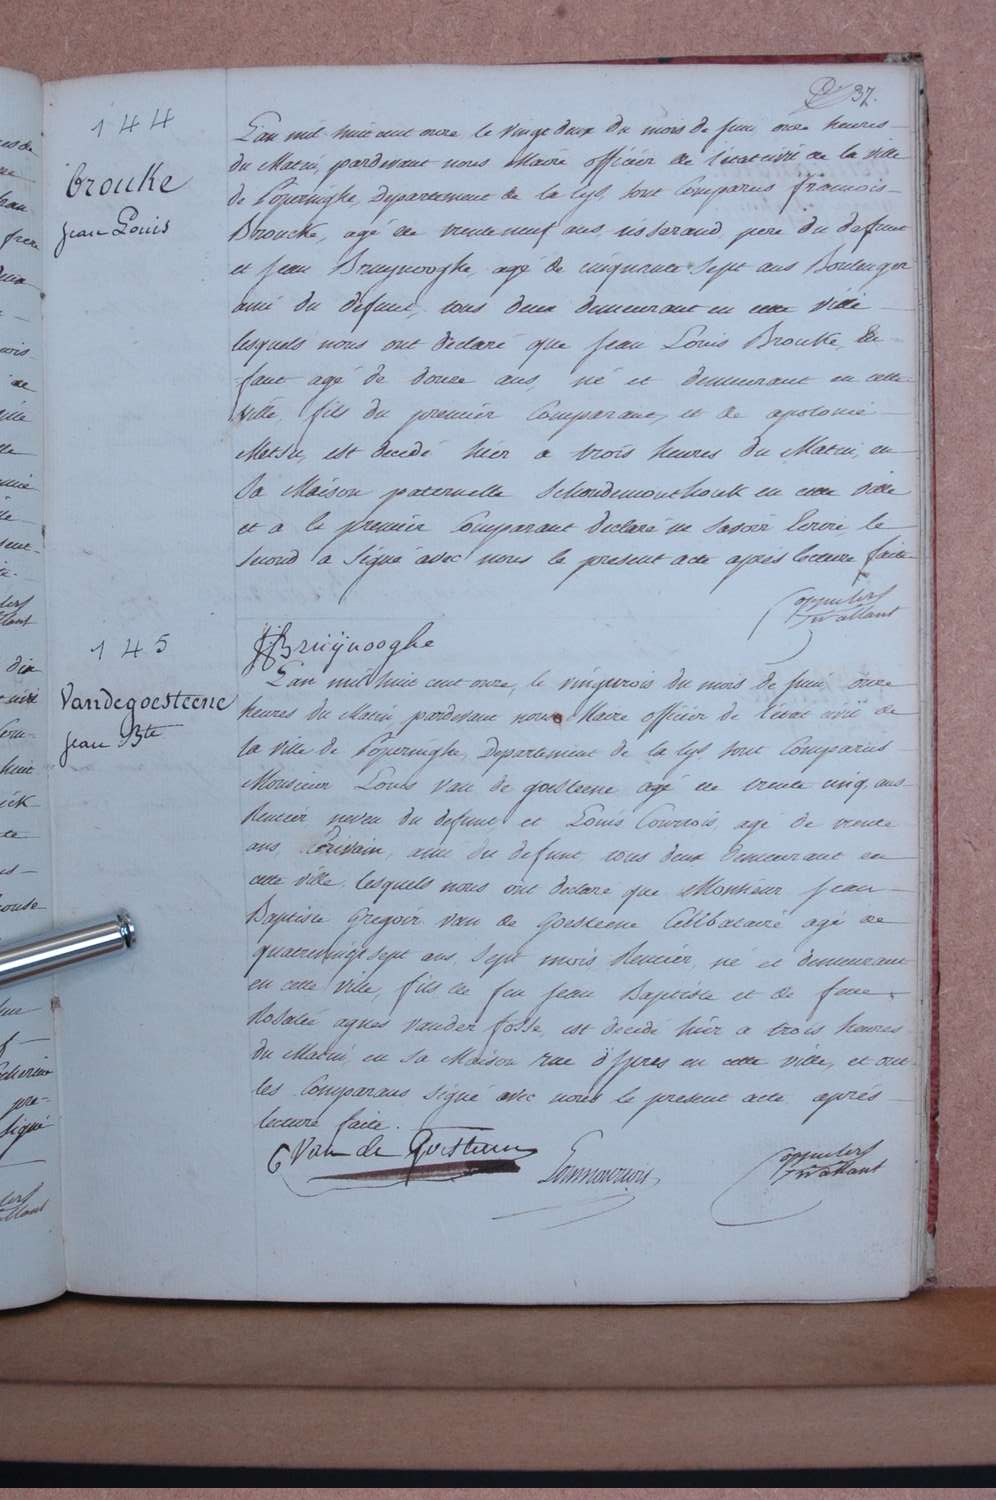 37.
144
Brouke
Jean Louis
L'an mil huit cent onze le vingt deux du mois de juin onze heures
du Matin, pardevant nous Maire officier de l'état civil de la ville
de Poperinghe, Departement de la Lys, sont Comparus francois
Broucke, agé de trente neuf ans, tisserand, pere du defunt
et Jean Bruynooghe, agé de cinquante sept ans Boulanger
ami du defunt, tous deux demeurant en cette ville
lesquels nous ont declaré que Jean Louis Brouke, En-
fant agé de douze ans, né et demeurant en cette
ville, fils du premier Comparant, et de apolonie
est decedé hier a trois heures du Matin, en
sa Maison paternelle en cette ville
et a le premier Comparant declaré ne savoir Ecrire, le
second a signé avec nous le present acte après lecture faite
Bruÿnooghe
145
Vandegoesteene
Jean Bte
L'an mil huit cent onze, le vingt trois du mois de juin onze
heures du Matin, pardevant nous Maire officier de l'état civil de
la ville de Poperinghe, Departement de la Lys, sont Comparus
Monsieur Louis Van de goesteene agé de trente cinq ans
Rentier neveu du defunt, et Louis Courtois, agé de trente
ans Ecrivain, ami du defunt, tous deux demeurant en
cette ville, lesquels nous ont declaré que Monsieur Jean
Baptiste Gregoir van de Goesteene Celibataire agé de
quatrevingt sept ans, sept mois, Rentier, né et demeurant
en cette ville, fils de feu Jean Baptiste et de feue
Rosalie agnes vander fosse, est decedé hier a trois heures
du Matin, en sa Maison rue d'Ypres en cette ville, et ont
les Comparans signé avec nous le present acte après
lecture faite.
Van de Goesteene